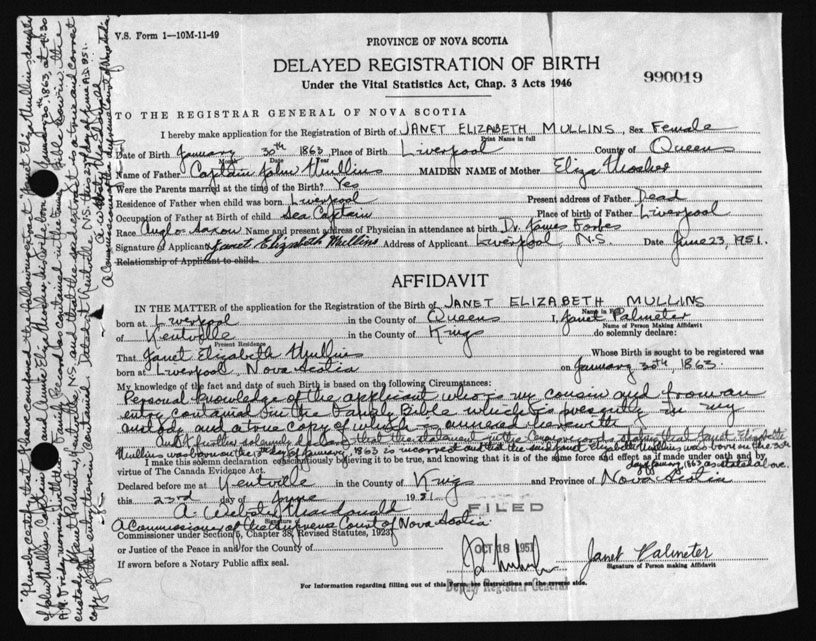 V.S. Form 1—10M-11-49
PROVINCE OF NOVA SCOTIA
DELAYED REGISTRATION OF BIRTH
Under the Vital Statistics Act, Chap. 3 Acts 1946
990019
TO THE REGISTRAR GENERAL OF NOVA SCOTIA
I hereby make application for the Registration of Birth of JANET ELIZABETH MULLINS, Sex Female
Print Name in full
Date of Birth January 30th 1863 Place of Birth Liverpool County of Queens
Month Date Year
Name of Father Captain John Mullins MAIDEN NAME of Mother Eliza
Were the Parents married at the time of the Birth? Yes
Residence of Father when child was born Liverpool Present address of Father Dead
Occupation of Father at Birth of child Sea Captain Place of birth of Father Liverpool
Race Anglo-Saxon Name and present address of Physician in attendance at birth Dr. James Forbes
Signature of Applicant Janet Elizabeth Mullins Address of Applicant Liverpool, N.S. Date June 23, 1951.
Relationship of Applicant to child
AFFIDAVIT
IN THE MATTER of the application for the Registration of the Birth of JANET ELIZABETH MULLINS
Name in Full
born at Liverpool in the County of Queens I, Janet Palmeter
Name of Person Making Affidavit
of Kentville in the County of Kings do solemnly declare:
Present Residence
That Janet Elizabeth Mullins Whose Birth is sought to be registered was
born at Liverpool, Nova Scotia on January 30th 1863.
My knowledge of the fact and date of such Birth is based on the following Circumstances:
Personal knowledge of the applicant who is my cousin and from an
entry contained in the Family Bible which is presently in my
custody and a true copy of which is annexed herewith
And I further solemnly declare that the statement in the stating that Janet Elizabeth
Mullins was born on the day of January, 1863 is incorrect and that the said Janet Elizabeth Mullins was born on the 30th
day of January, 1863, as stated above.
I make this solemn declaration conscientiously believing it to be true, and knowing that it is of the same force and effect as if made under oath and by
virtue of The Canada Evidence Act.
Declared before me at Kentville in the County of Kings and Province of Nova Scotia
this 23rd day of June 1951
A. Webster Macdonald
Signature
A Commissioner of the Supreme Court of Nova Scotia
Commissioner under Section 5, Chapter 38, Revised Statutes, 1923
or Justice of the Peace in and for the County of
If sworn before a Notary Public affix seal.
FILED
OCT 18 1951
Deputy Registrar General
Janet Palmeter
Signature of Person making Affidavit
For Information regarding filling out of this Form, see instructions on the reverse side.
"I hereby certify that I have compared the following extract "Janet Eliza Mullins, daughter
of John Mullins Captain and Annie Eliza his wife born January 30th, 1863, at 4:30
A.M. Friday morning" with the Family Record as contained in the Family Bible now in the
custody of Janet Palmeter, Kentville, N.S. and that the said extract is a true and correct
copy of the entry therein contained. Dated at Kentville, N.S. this 23rd day of June A.D. 1951.
A. Webster Macdonald
A Commissioner of the Supreme Court of Nova Scotia